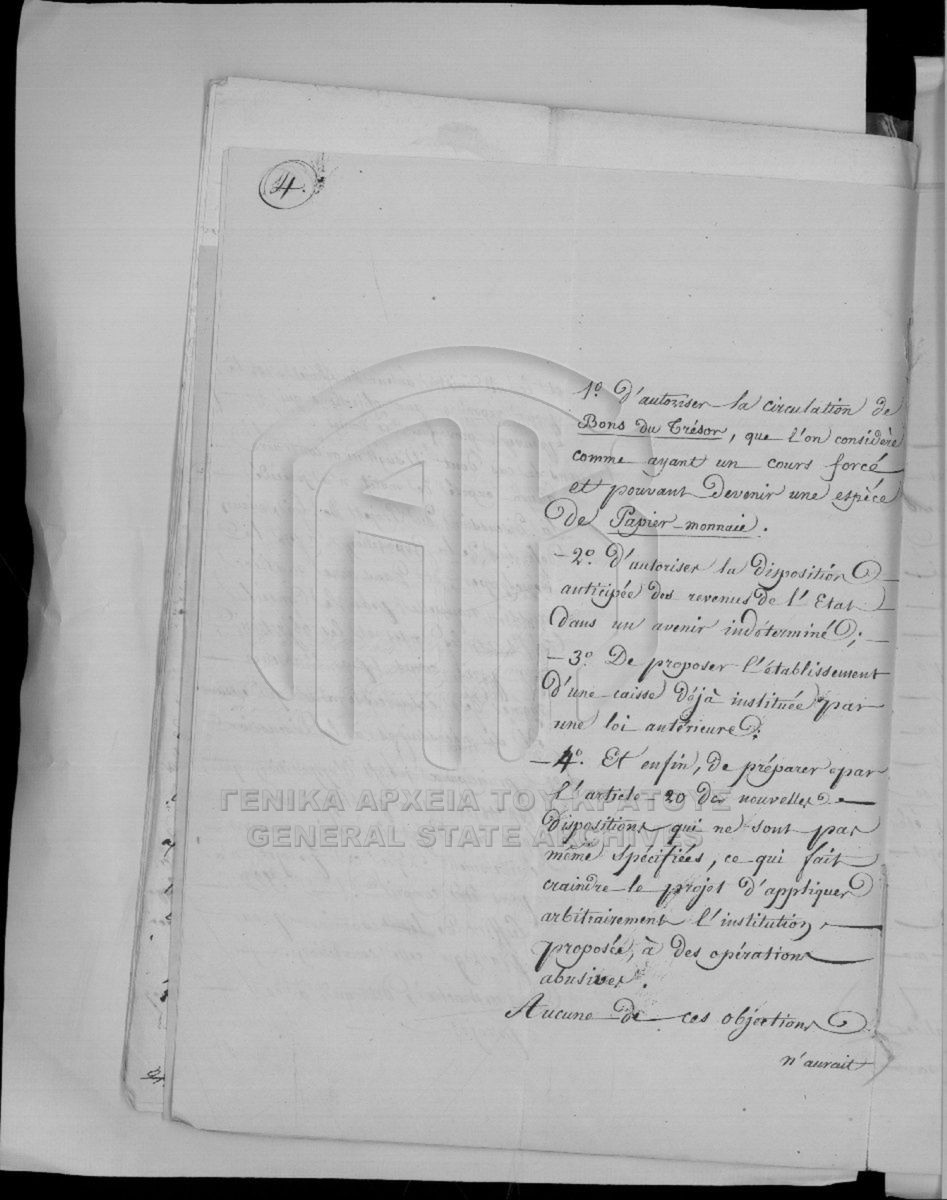 4.
1º. D'autoriser la circulation de
Bons du Trésor, que l'on considère
comme ayant un cours forcé
et pouvant devenir une espèce
de Papier-monnaie.
– 2º. D'autoriser la disposition
anticipée des revenus de l'Etat
dans un avenir indéterminé;
– 3º. De proposer l'établissement
d'une caisse déjà instituée par
une loi antérieure;
– 4º. Et enfin, de préparer par
l'article 20 des nouvelles
dispositions qui ne sont pas
même spécifiées, ce qui fait
craindre le projet d'appliquer
arbitrairement l'institution
proposée, à des opérations
abusives.
Aucune de ces objections
n'aurait
ΓΕΝΙΚΑ ΑΡΧΕΙΑ ΤΟΥ ΚΡΑΤΟΥΣ
GENERAL STATE ARCHIVES